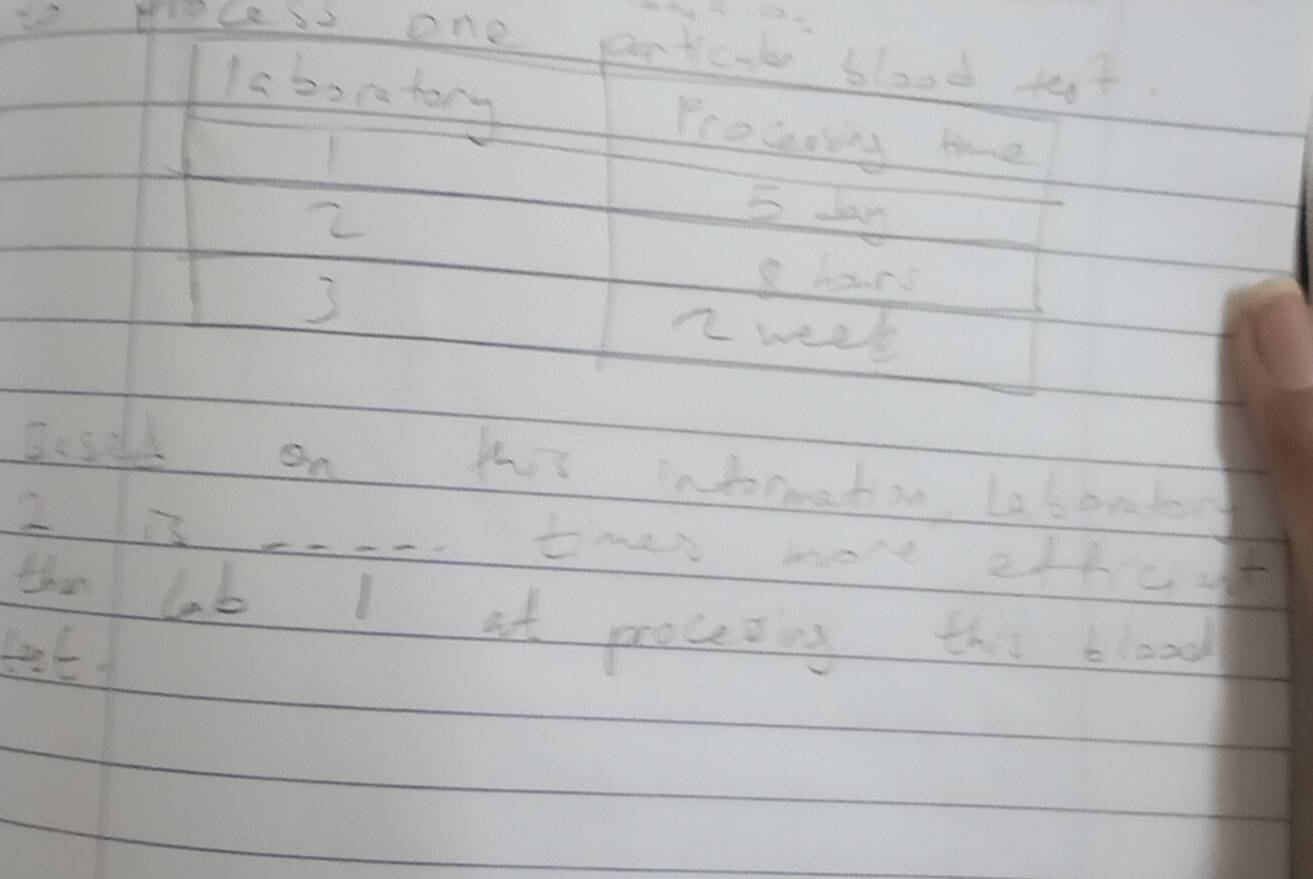 process one particular blood test.
laboratory Processing time
1 5 day
2 8 hours
3 2 week
Based on this information Laboratory
2 is ------ times more efficient
than lab 1 at procesing this blood
test.